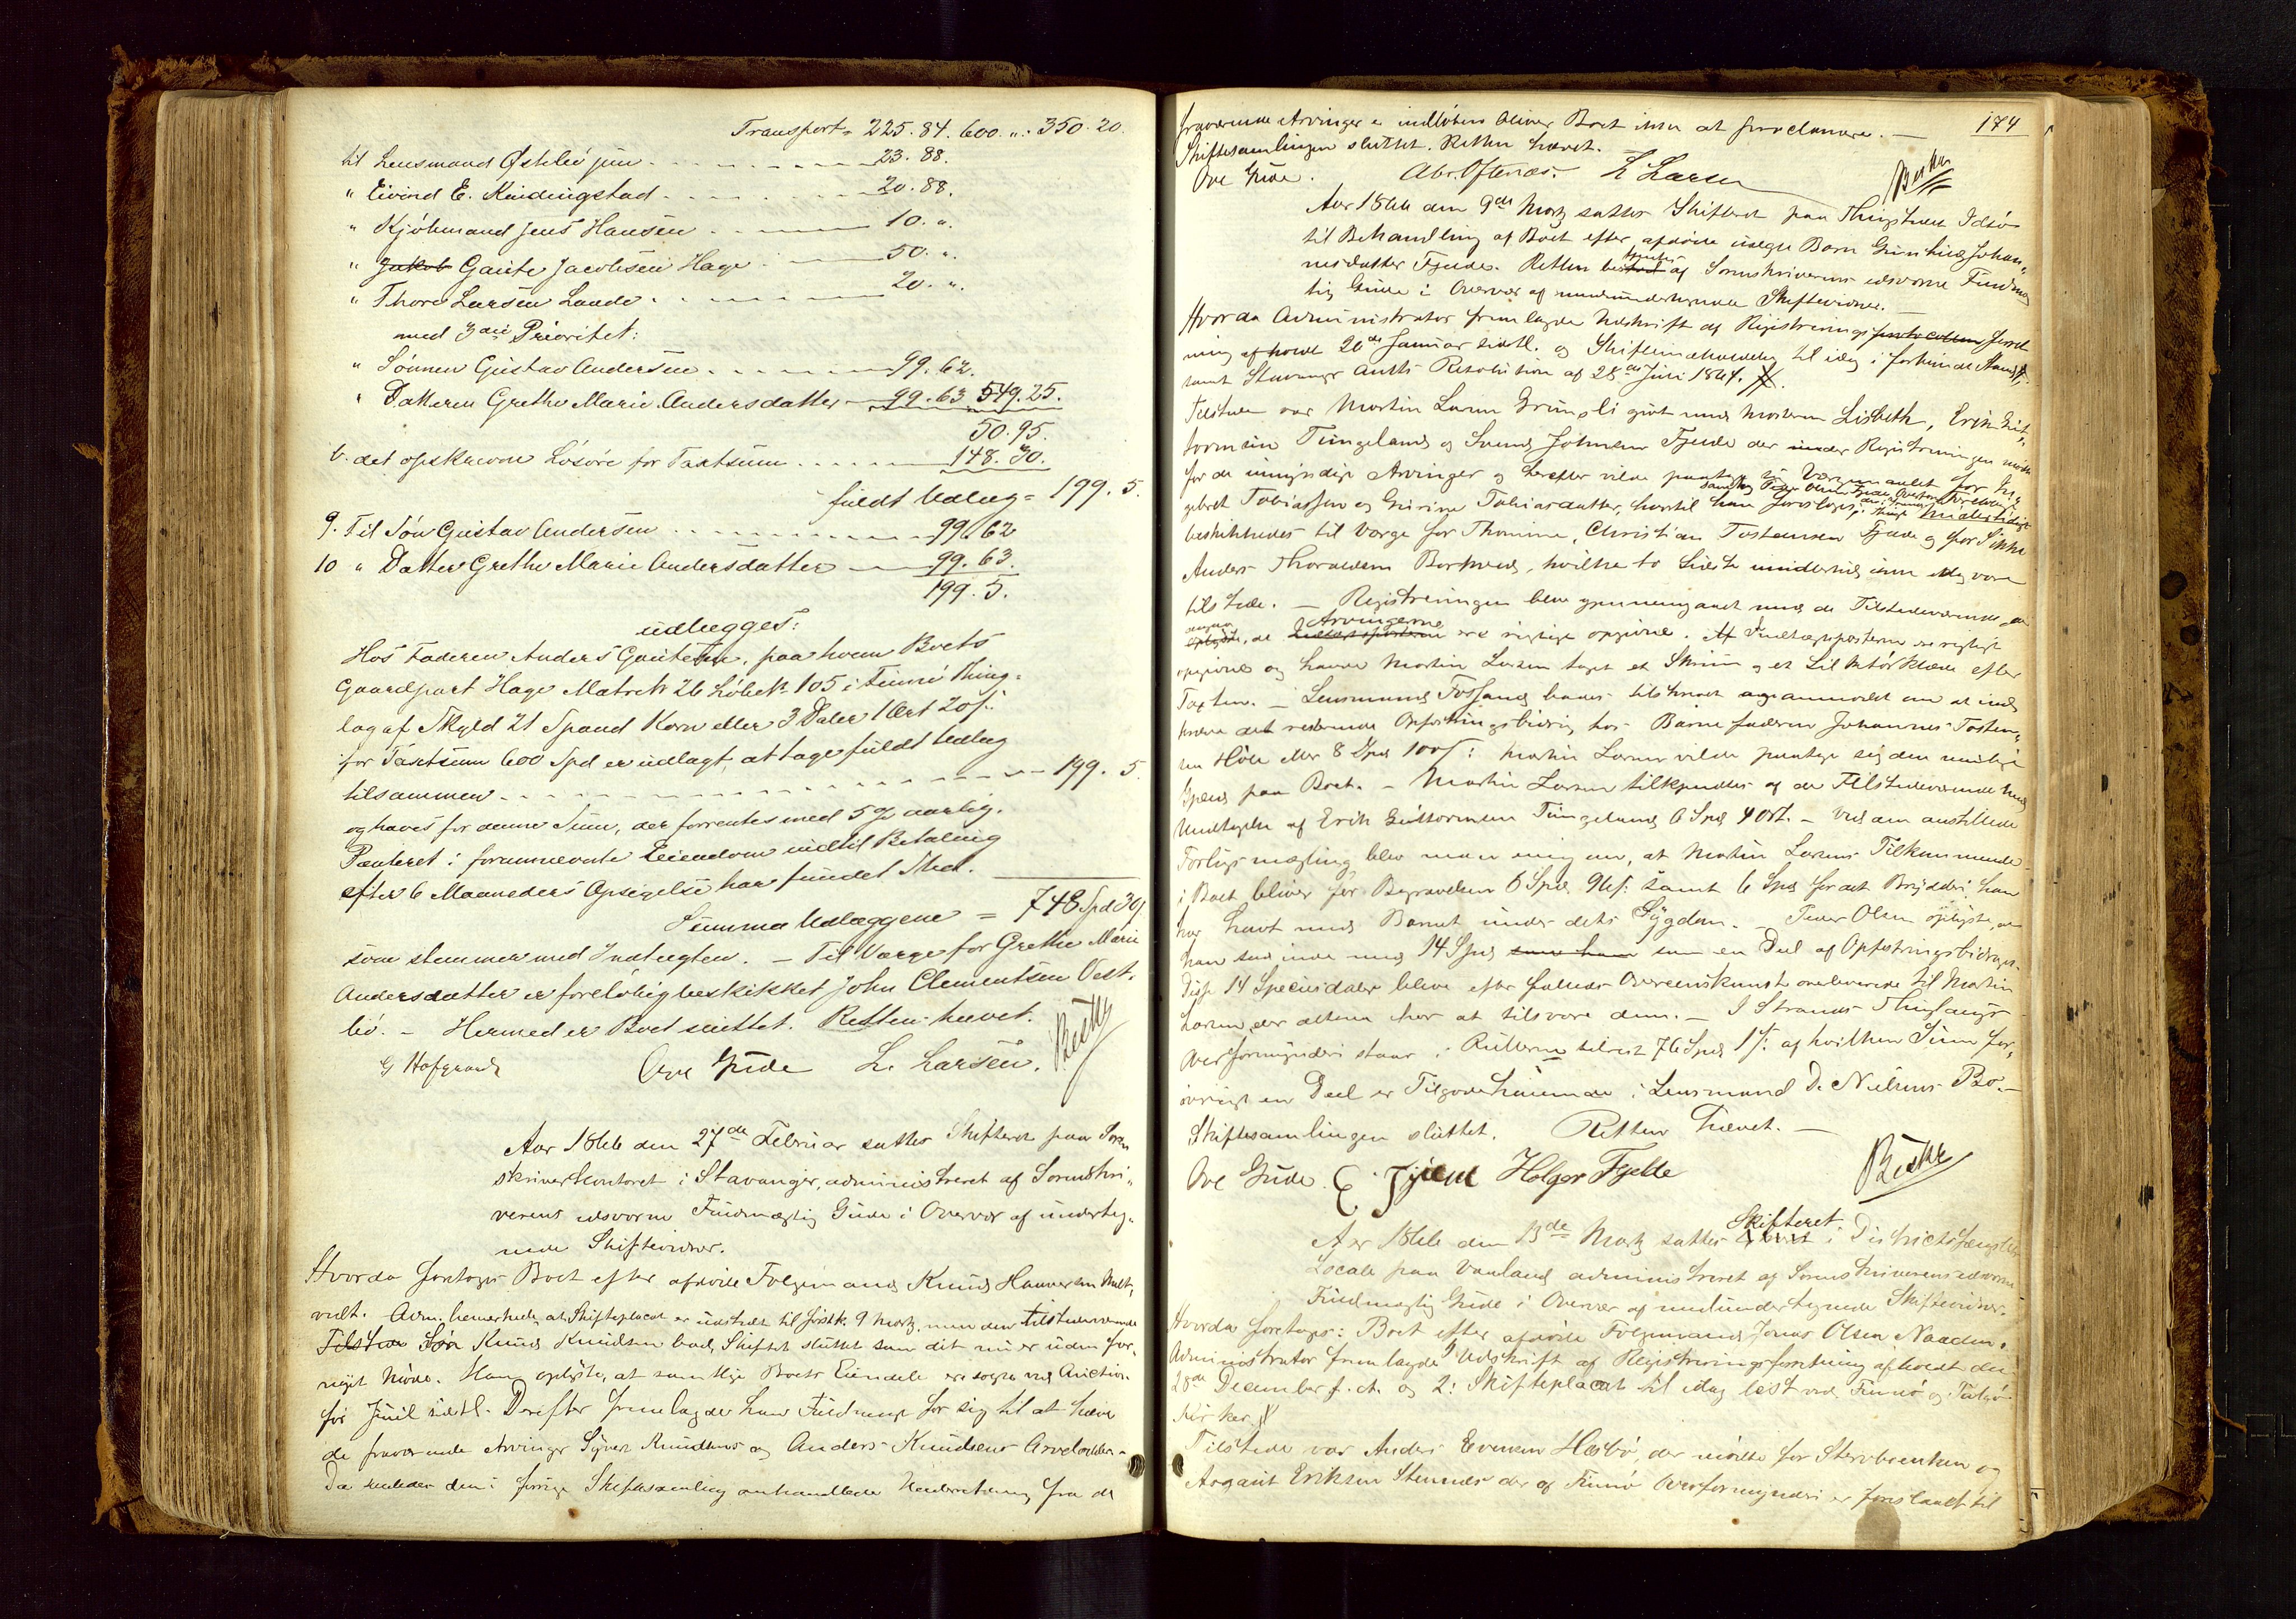 Transport = 225. 84. 600. „ : 350. 20.
til Lensmand Østebø jun - - - - 23. 88.
„ Eivind E. Kindingstad - - - - 20. 88.
„ Kjøbmand Jens Hansen - - - 10. „.
„ Jakob Gaute Jacobsen Hage - - 50. „.
„ Thore Larsen Lande - - - - 20. „.
med 3die Prioritet:
„ Sønnen Gustav Andersen - - - 99. 62.
„ Datteren Grethe Marie Andersdatter - 99. 63 549. 25.
50. 95.
b. det opskrevne Løsøre for Taxtsum - - - 148. 30.
fuldt Udlæg = 199. 5.
9. Til Søn Gustav Andersen - - - - 99. 62
10 „ Datter Grethe Marie Andersdatter - 99. 63.
199. 5.
udlægges:
Hos Faderen Anders Gautesen, paa hvem Boets
Gaardpart Hage Matr No 26 Løbe No 105 i Finnø Thing-
lag af Skyld 21 Spand Korn eller 3 Daler 1 Ort 20 s.
for Taxtsum 600 Spd er udlagt, at tage fuldt Udlæg
tilsammen - - - - - - 199. 5.
og haves for denne Sum, der forrentes med 5 % aarlig,
Panteret i forannævnte Eiendom indtil Betaling
efter 6 Maaneders Opsigelse har fundet Sted.
Summa Udlæggene = 748 Spd 30 s
som stemmer med Indtægten. - Til Værge for Grethe Marie
Andersdatter er foreløbig beskikket John Clementsen Vest-
bø. - Hermed er Boet sluttet. Retten hævet.
Ove Gude L. Larsen.
Aar 1866 den 27de Februar sattes Skifteret paa Soren
skriverkontoret i Stavanger, administreret af Sorenskri-
verens edsvorne Fuldmægtig Gude i Overvær af underteg-
nede Skiftevidner.
Hvorda foretoges Boet efter afdøde Folgemand Knud
vedt. Adm. bemærkede, at Skifteplacat er udstedt til 9 Martz, men den tilstedeværende
Tilstede Søn Knud Knudsen bad Skiftet sluttet som det nu er uden for-
nyet Møde. Han oplyste, at samtlige Boets Eiendele ere solgte ved Auction
før Juul sidstl. Derefter fremlagde han Fuldmagt for sig til at hæve
de fraværende Arvinger Sjur Knudsens og Anders Knudsens Arvelodder. -
Da den i forrige Skiftesamling omhandlede Underretning fra de
174
fraværende Arvinger er indløben bliver Boet ikke at proclamere. -
Skiftesamlingen sluttet. Retten hævet.
Ove Gude. L Larsen
Aar 1866 den 9de Martz sattes Skifteret paa Thingstedet Idsø
til Behandling af Boet efter afdøde uægte Barn Gunhild Johan-
nesdatter Fjelde. Retten betjentes af Sorenskriverens edsvorne Fuldmæg
tig Gude i Overvær af medundertegnede Skiftevidner. -
Hvorda Administrator fremlagde Udskrift af Registreringsprotocollen forret
ning afholdt 20de Januar sidstl. og Skifteindkaldelse til idag i forkyndt Stand,
samt Stavanger Amts Resolution af 28de Juni 1864.
Tilstede var Martin Larsen gift med Moderen Lisbeth, Erik Gut-
tormsen Tungeland og Svend Johnsen Fjelde der under Registreringen mødte
for de umyndige Arvinger og herefter vilde paatage sig Værgemaalet for In-
geborg Tobiasdatter og Gurine Tobiasdatter, hvortil han foresloges;
beskikkedes til Værge for Thomine, Christian Tostensen Fjelde og for
Anders Thoraldsen hvilke to Sidste imidlertid ikke idag vare
tilstede. - Registreringen blev gjennemgaaet med de Tilstedeværende, der
oplyste, at Indtægtsposterne Arvingerne ere rigtig opgivne. At Indtægtsposterne ere rigtigt
opgivne og havde Martin Larsen taget et Skrin og et Silketørklæde efter
Taxten. - Lensmand Fossand bades tilskrevet og anmodet om at ind
kræve det resterende Opfostringsbidrag hos Barnefaderen Johannes Tosten-
sen Hole eller 8 Spd 100 s: Martin Larsen vilde paatage sig den mulige
Gjæld paa Boet. - Martin Larsen tilkjendtes af de Tilstedeværende med
Undtagelse af Erik Guttormsen Tungeland 6 Spd 4 Ort. - Ved en anstillet
Forligsmægling blev man enig om, at Martin Larsens Tilkommende
i Boet bliver for Begravelsen 6 Spd 96 s: samt 6 Spd for det Bryderi han
har havt med Barnet under dets Sygdom. - Olsen oplyste, at
han sad inde med 14 Spd som han som en Deel af Opfostringsbidraget.
Disse 14 Speciedaler bleve efter fælleds Overeenskomst overleverede til Martin
Larsen, der altsaa har at tilsvare dem. - I Strands Thinglaugs
Overformynderi staar i Rullerne tilrest 76 Spd 1 s. af hvilken Sum for-
øvrigt en Deel er Tilgodehavende i Lensmand D. Nielsens Bo. -
Skiftesamlingen sluttet. Retten hævet. -
Ove Gude. Holger Fjelde
Aar 1866 den 13de Martz sattes Skifteret i Districtsfængslets
Locale paa Vanland administreret af Sorenskriverens edsvorne
Fuldmægtig Gude i Overvær af medundertegnede Skiftevidner.
Hvorda foretoges: Boet efter afdøde Folgemand Jonas Olsen Naaden.
Administrator fremlagde 1, Udskrift af Registreringsforretning afholdt den
28de December f. A. og 2: Skifteplacat til idag læst ved Finnø og
Kirker.
Tilstede var Anders Evensen Hæsbø, der mødte for Stervboenken og
Asgaut Eriksen der af Finnø Overformynderi er foreslaaet til